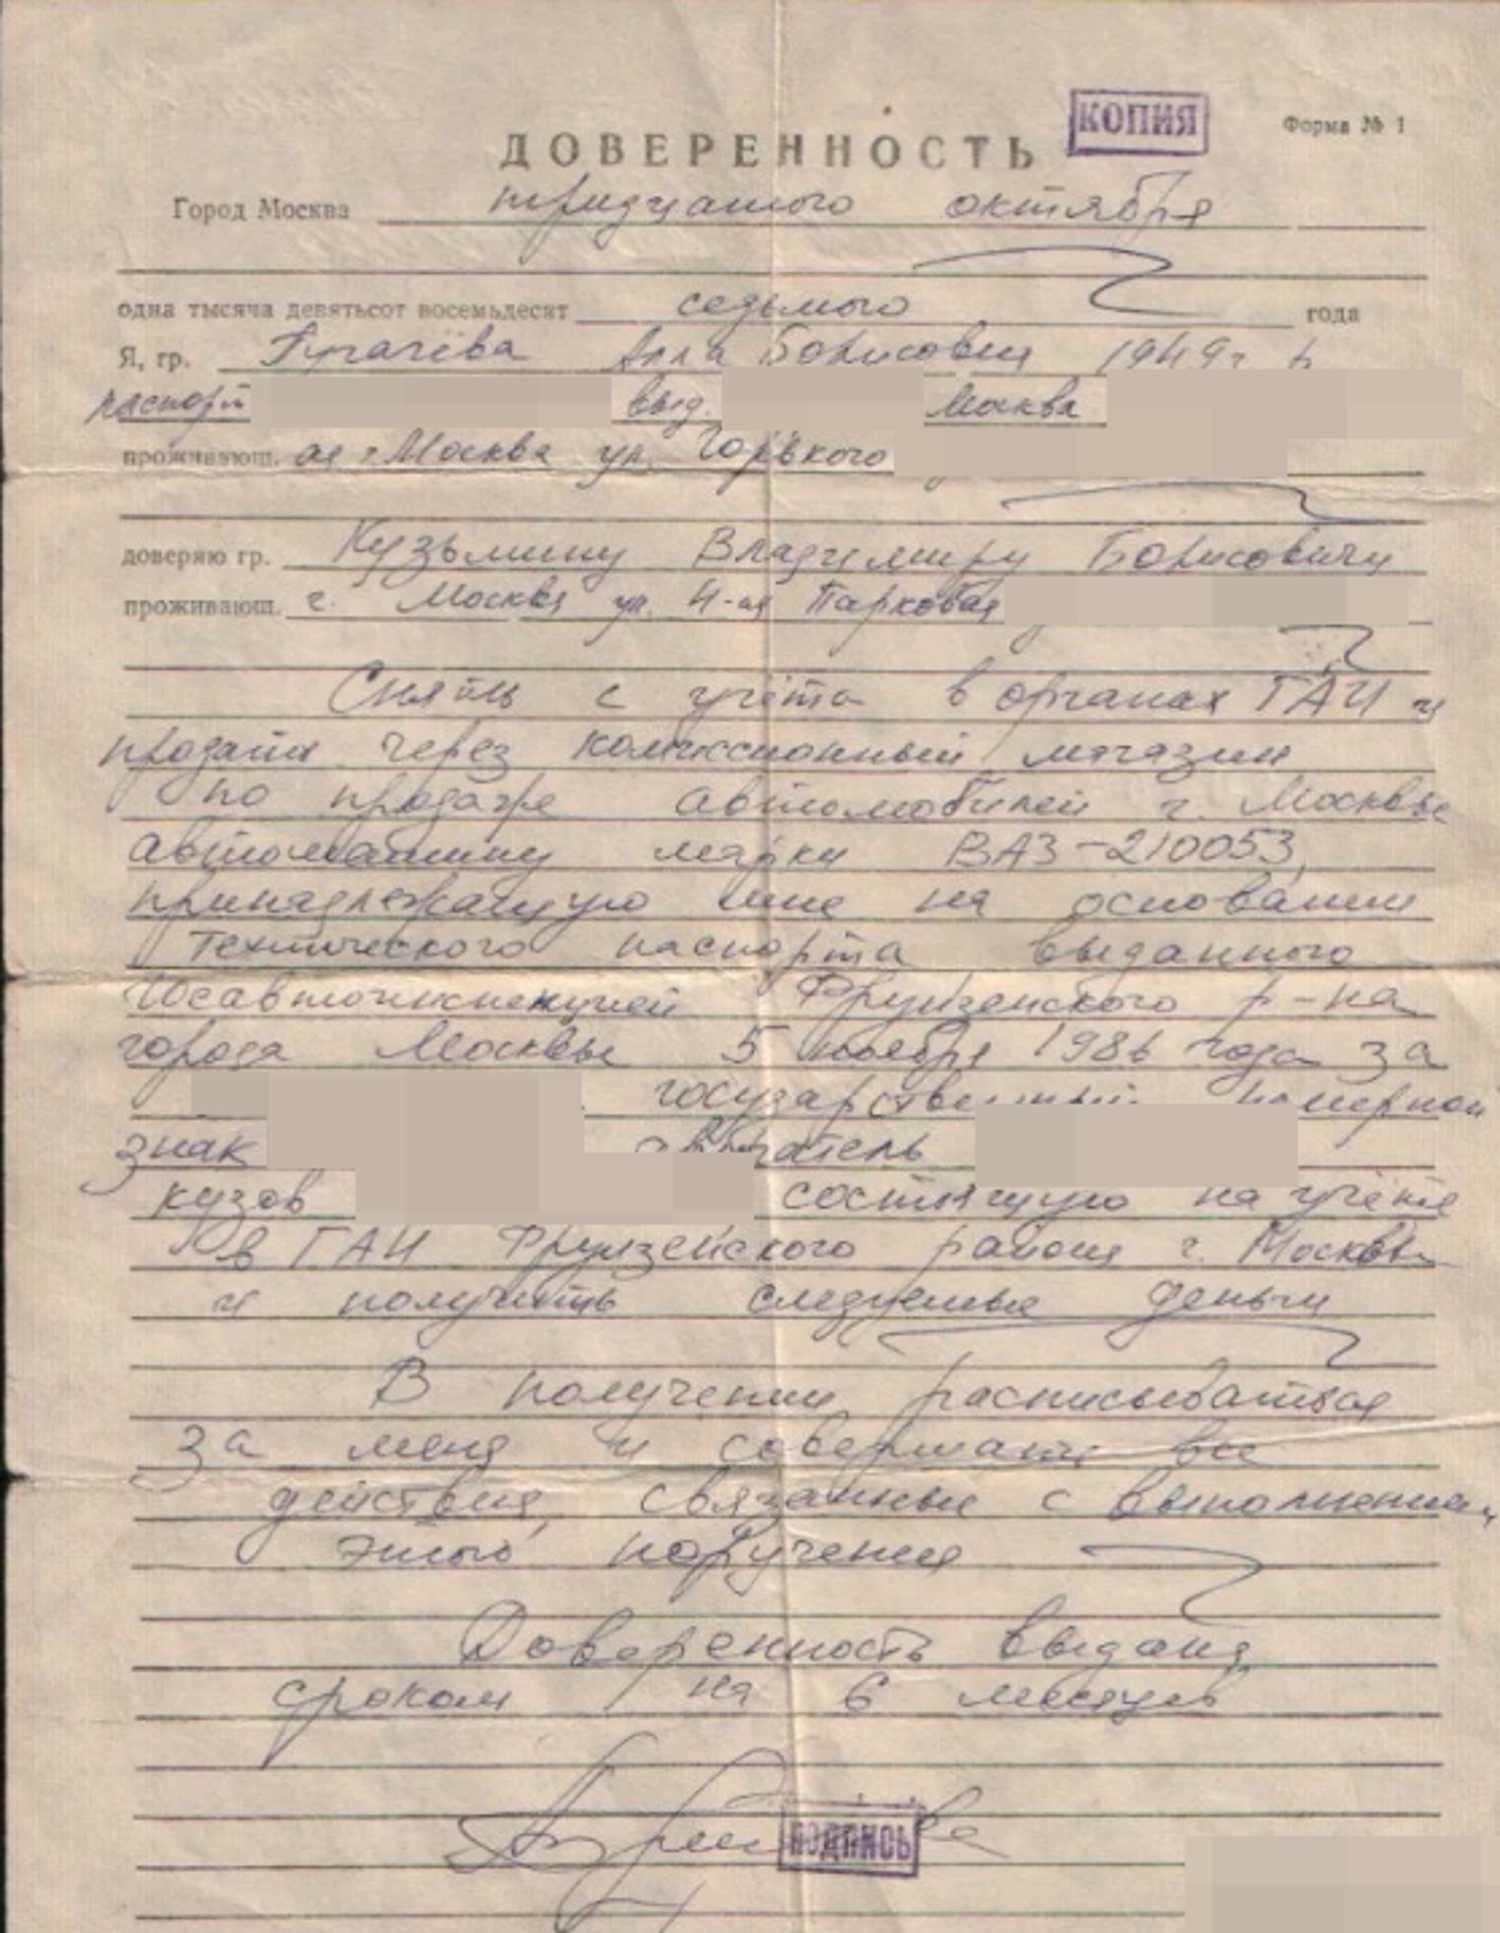 КОПИЯ
Форма № 1
ДОВЕРЕННОСТЬ
Город Москва тридцатого октября
одна тысяча девятьсот восемьдесят седьмого года
Я, гр. Пугачёва Алла Борисовна 1949 г р
паспорт выд. Москва
проживающ. ая г. Москва ул. Горького
доверяю гр. Кузьмину Владимиру Борисовичу
проживающ. г. Москва ул. 4-ая Парковая
Снять с учёта в органах ГАИ и
продать через комиссионный магазин
по продаже автомобилей г. Москвы
автомашину марки ВАЗ-210053,
принадлежащую мне на основании
технического паспорта выданного
Госавтоинспекцией Фрунзенского р-на
города Москвы 5 ноября 1986 года за
государственный номерной
знак двигатель
кузов состоящую на учёте
в ГАИ Фрунзенского района г. Москвы
и получить следуемые деньги
В получении расписываться
за меня и совершать все
действия, связанные с выполнением
этого поручения
Доверенность выдана
сроком на 6 месяцев
ПОДПИСЬ